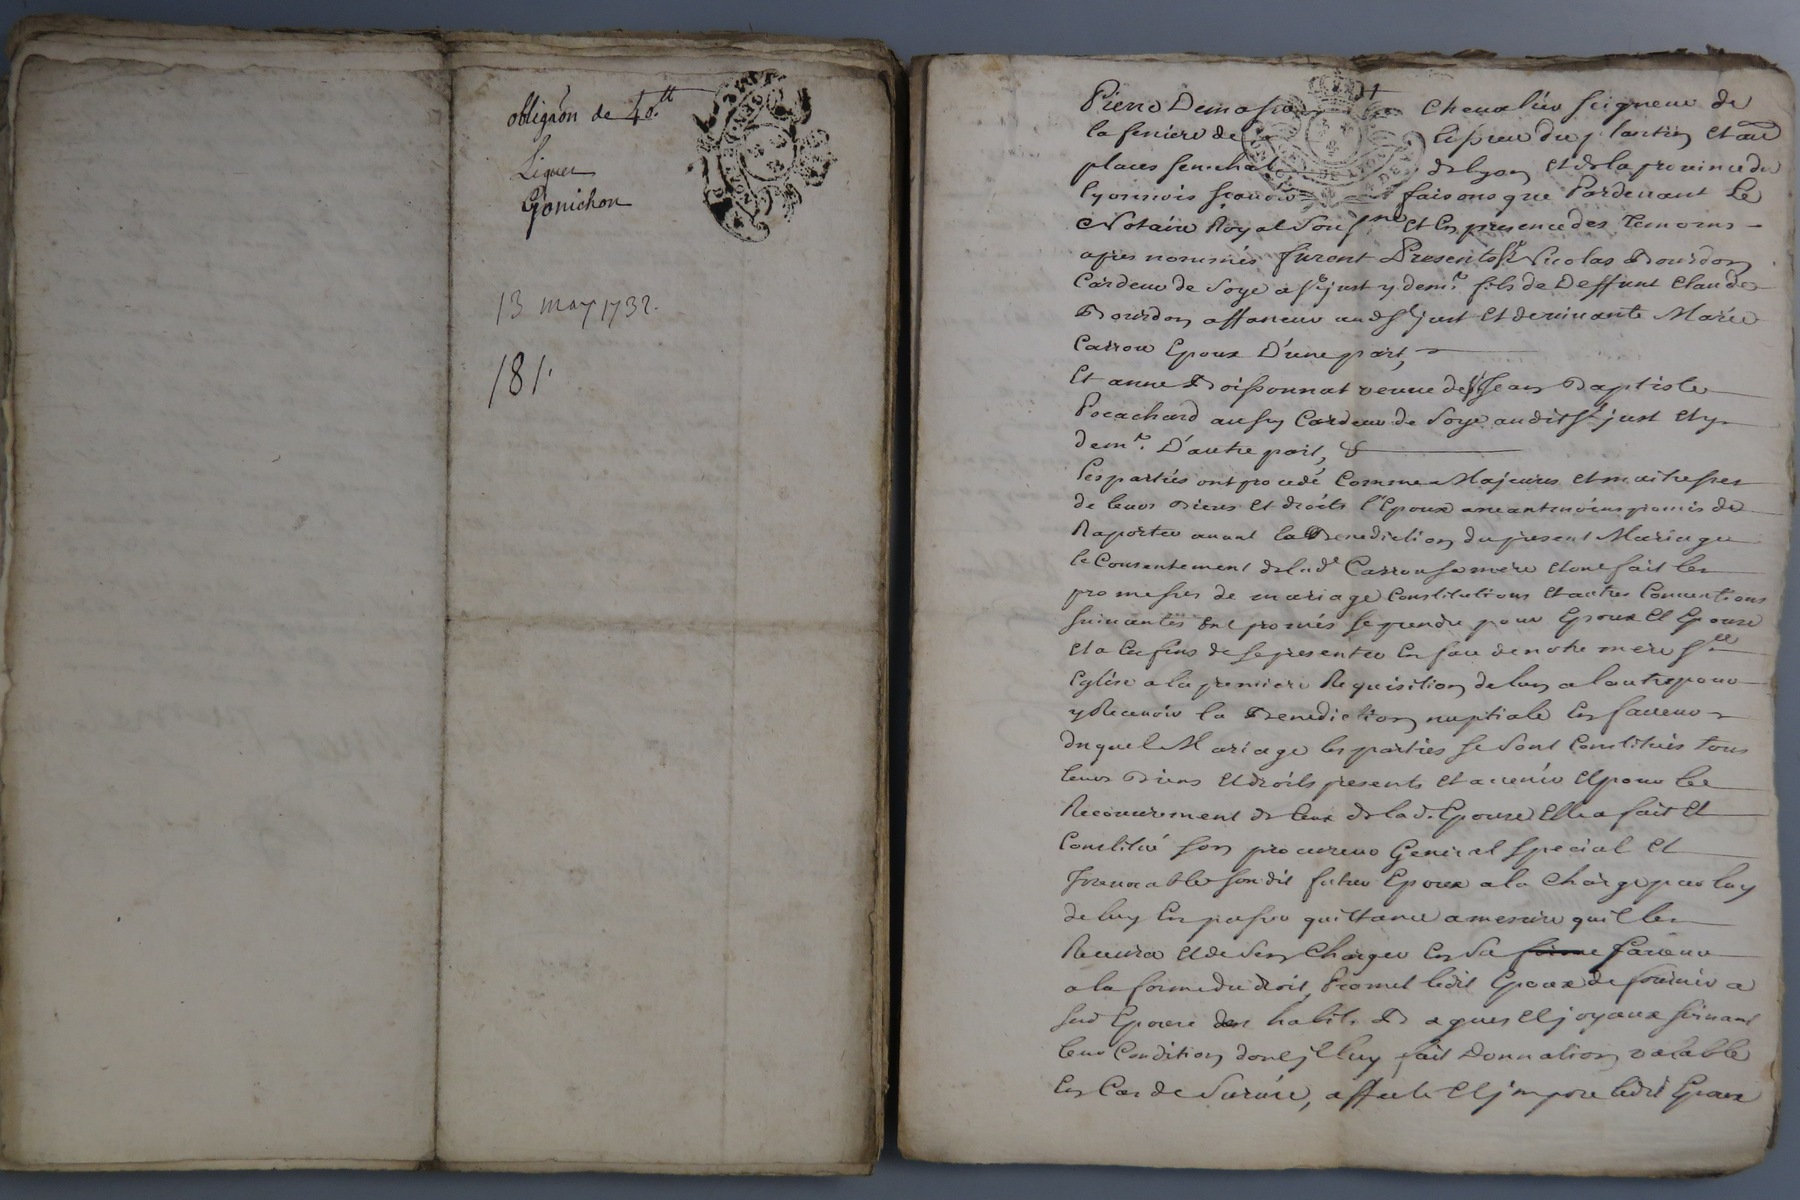 obligaõn de 40.ᵗᵗ
Liquer
Gonichon
13 may 1732.
181.
Pierre Demasso chevalier seigneur de
la feriere de lisieu du plantin et au
places senechal de lyon et de la province du
Lyonnois scavoir faisons que Pardevant Le
Notaire Royal Sousne. et En presence des Temoins
apres nommés furent Presents Sr. Nicolas Bourdon
Cardeur de Soye a St. just y demt. fils de Deffunt Claude
Bourdon affaneur aud St. just Et de vivante Marie
Carrou Epoux D'une part,
Et anne Boissonnat veuve de Sr. Jean Baptiste
Pocachard aussy Cardeur de Soye audit St. just Et y
demt. D'autre part, &
Les parties ont procedé Comme Majeures et maitresses
de leurs Biens Et droits l'Epoux aneantmoins promis de
Raporter avant la Benediction du present Mariage
le Consentement de lade Carrou sa mere et ont fait les
promesses de mariage Constitutions Et autres Conventions
suivantes Ont promis se prendre pour Epoux Et Epouse
Et a Ces fins de se presenter En face de notre mere Ste.
Eglise a la premiere Requisition de lun a lautre pour
y Recevoir la Benediction nuptiale En faveur
duquel Mariage les parties se Sont Constitués tous
leurs Biens et droits presents Et a venir Et pour le
Recouvrement de Ceux de la d. Epouse Elle a fait Et
Constitué son procureur General special Et
Irrevocable son dit futur Epoux a la Charge par luy
de luy En passer quittance a mesure quil les
Recevra et de Sen Charger En Sa forme faveur
a la forme du droit, Promet ledit Epoux de fournir a
sad Epouse des habits Bagues Et joyaux suivant
leur Condition dont jl luy fait Donnation valable
En Cas de Survie, affecte Et jmpose ledit Epoux